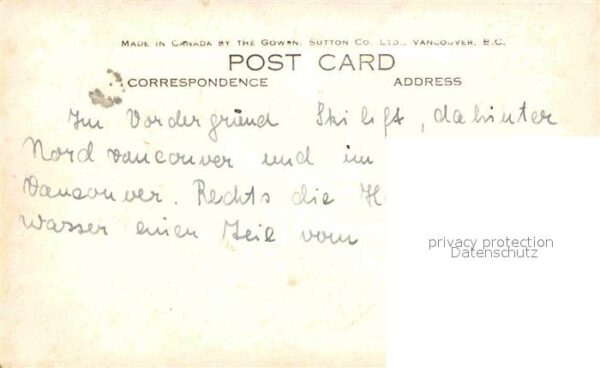 MADE IN CANADA BY THE GOWEN, SUTTON CO. LTD., VANCOUVER, B.C.
POST CARD
CORRESPONDENCE ADDRESS
Im Vordergrund Skilift, dahinter
Nordvancouver und im
Vancouver. Rechts die H
wasser einen Teil vom
privacy protection
Datenschutz